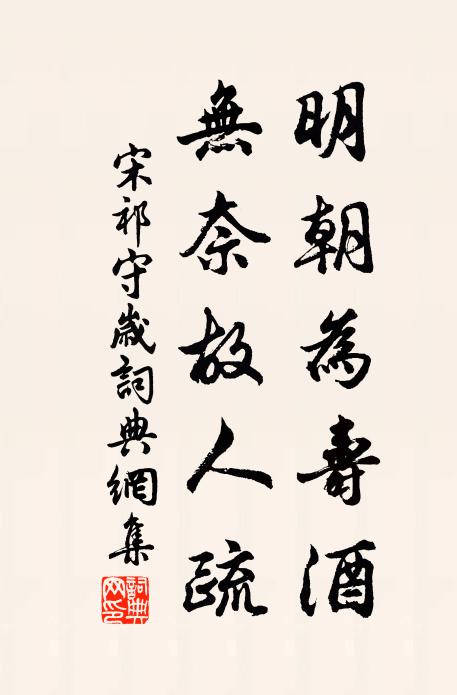 明朝為壽酒
無奈故人疏
宋祁守歲詞典網集
詞典网印